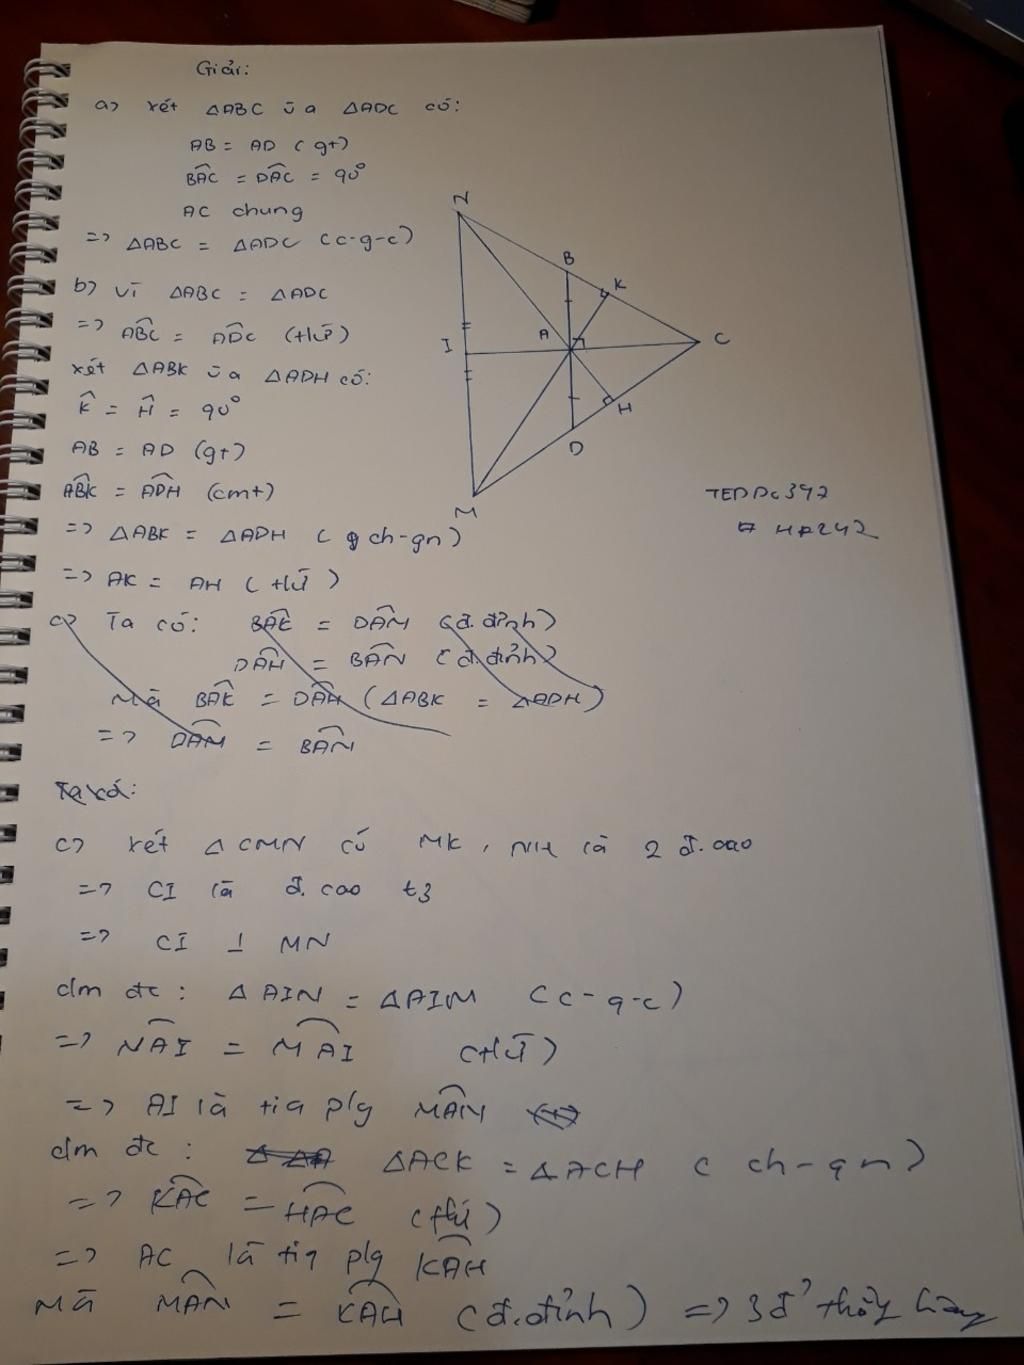 Giải:
a) xét △ABC và △ADC có:
AB = AD (gt)
BÂC = DÂC = 90°
AC chung
=> △ABC = △ADC (c-g-c)
b) Vì △ABC = △ADC
=> ABC = ADC (tứ)
xét △ABK và △ADH có:
K̂ = Ĥ = 90°
AB = AD (gt)
ABK = ADH (cmt)
=> △ABK = △ADH (ch-gn)
=> AK = AH (tứ)
c) Ta có: BÂK = DÂM (đ.đỉnh)
DÂH = BÂN (đ.đỉnh)
Mà BÂK = DÂH (△ABK = △ADH)
=> DÂM = BÂN
Ta có:
c) xét △CMN có MK, NH là 2 đ.cao
=> CI là đ.cao t3
=> CI ⊥ MN
cm đc: △AIN = △AIM (c-g-c)
=> NÂI = MÂI (tứ)
=> AI là tia p/g MÂN
cm đc: △ACK = △ACH (ch-gn)
=> KÂC = HÂC (tứ)
=> AC là tia p/g KÂH
Mà MÂN = KÂH (đ.đỉnh) => 3 đ' thẳng hàng
N
B
K
I
A
C
H
D
M